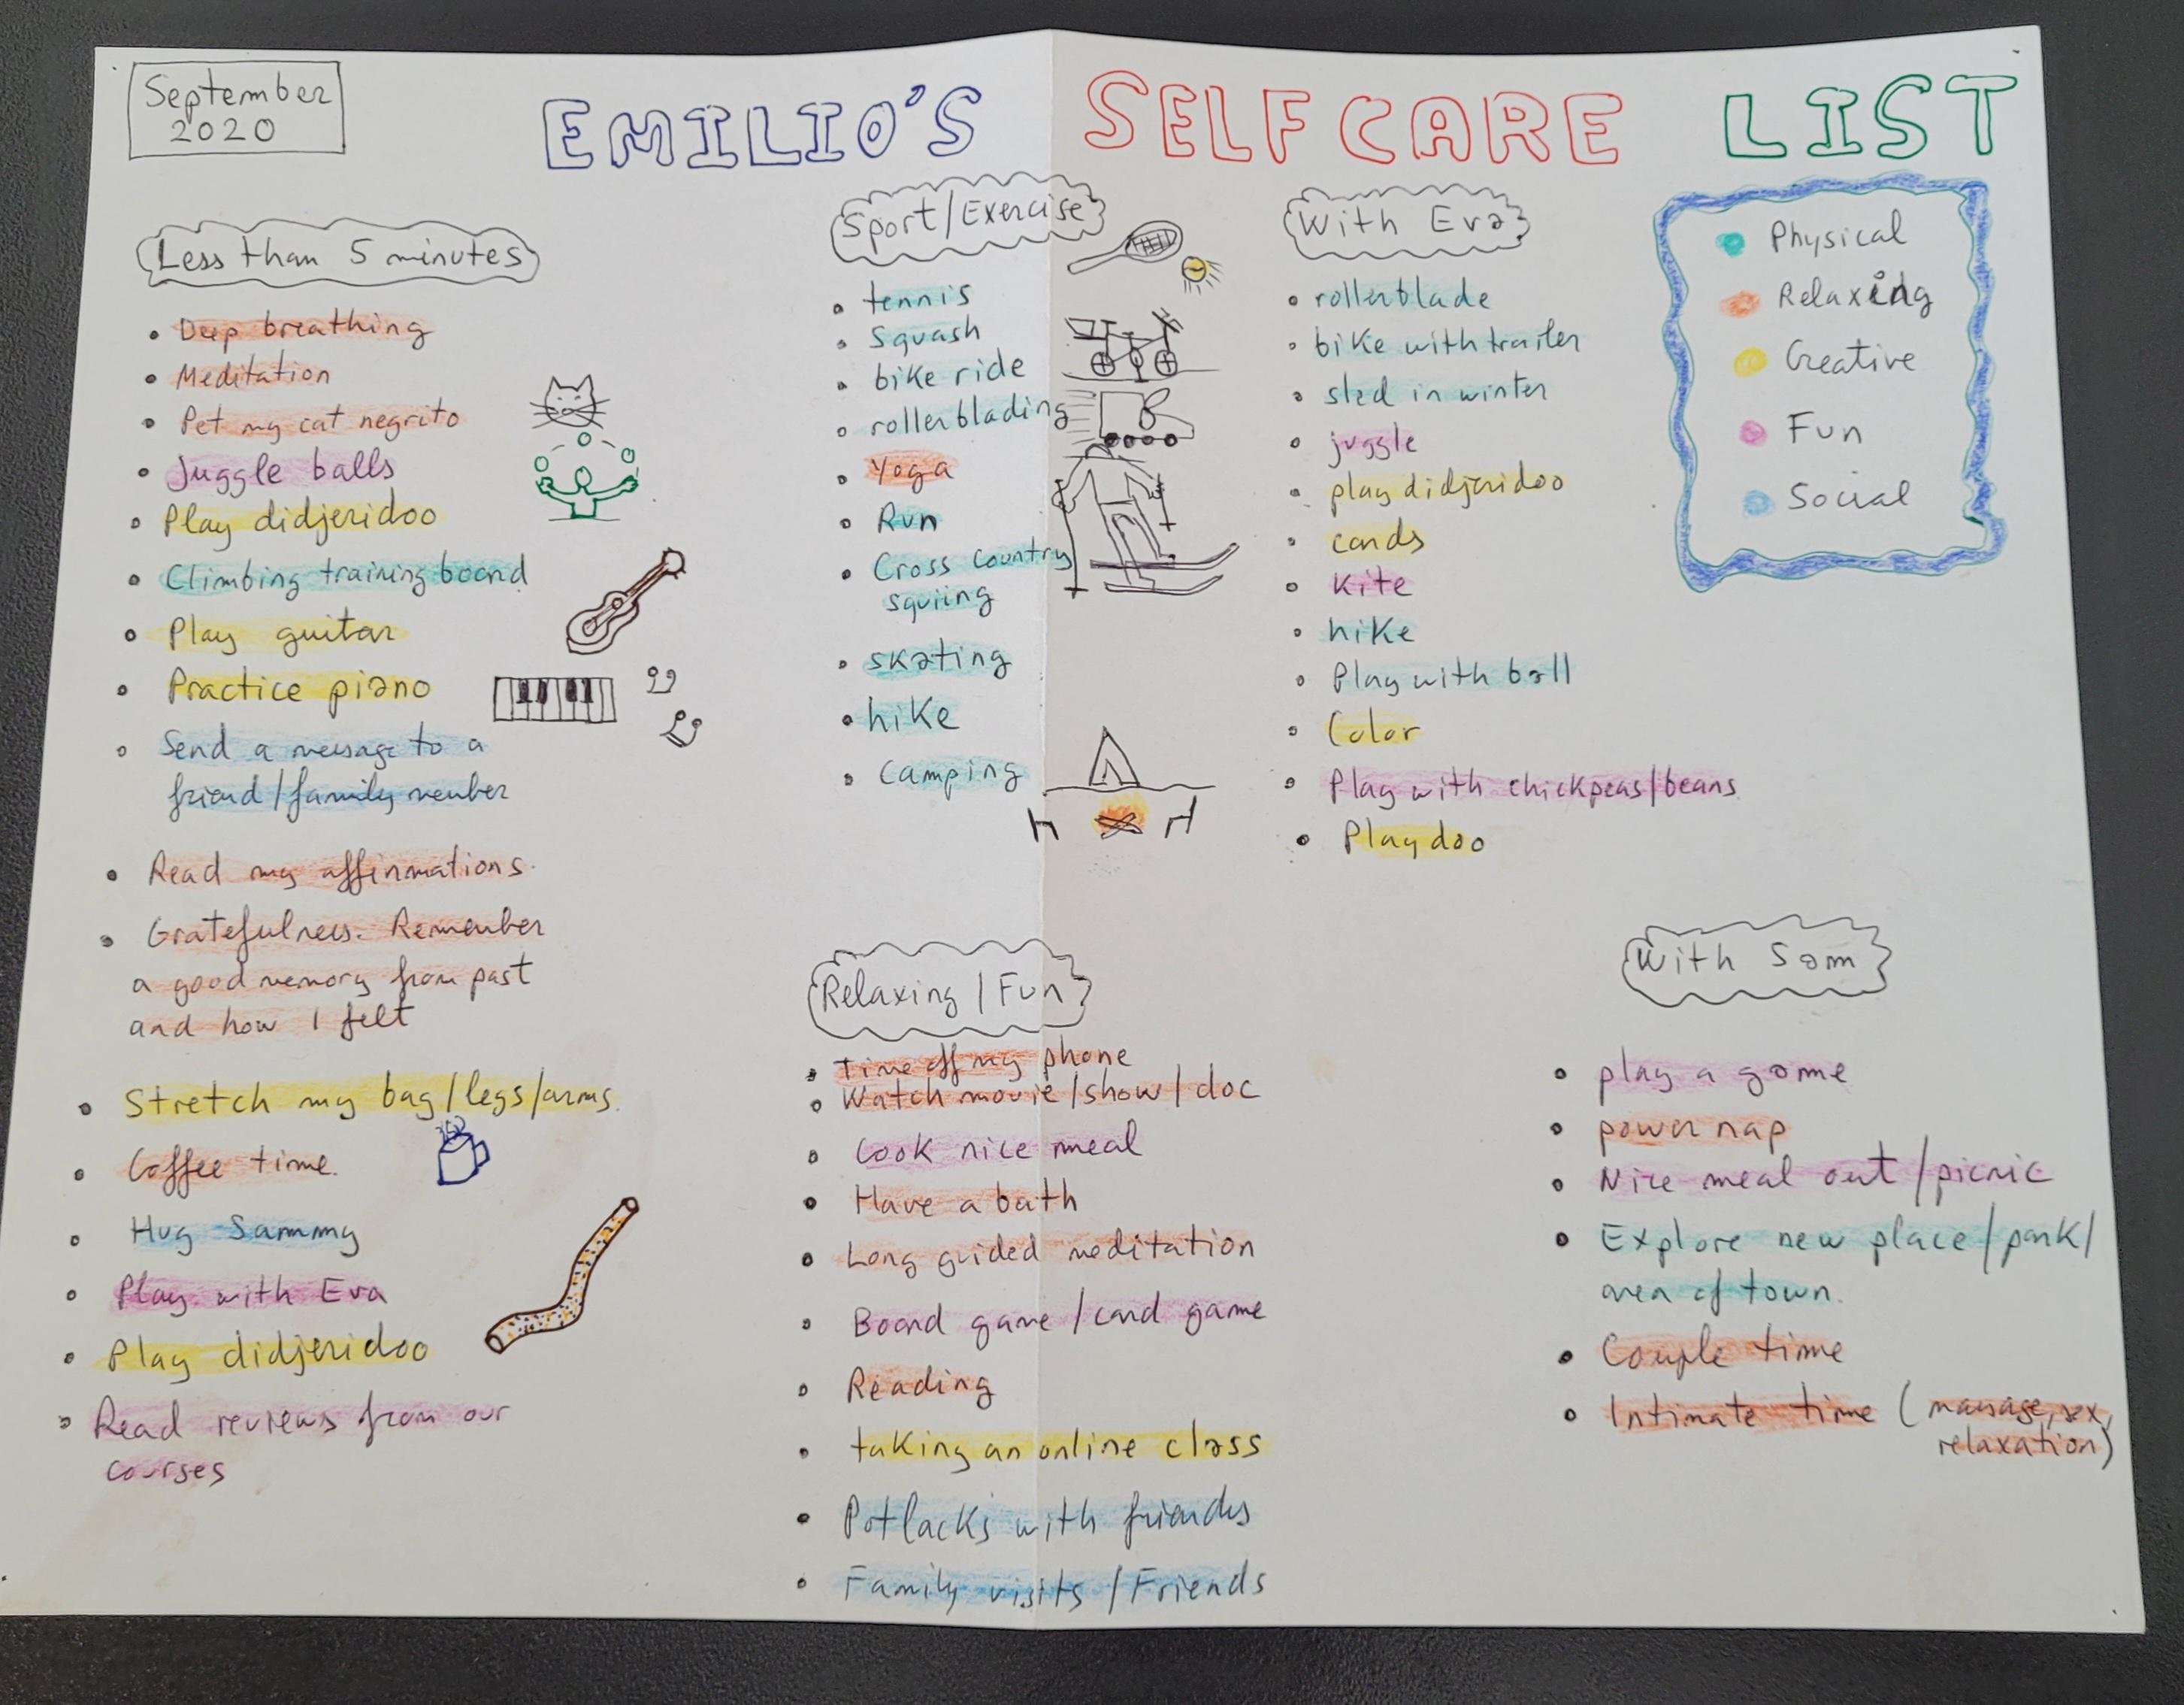 September
2020
EMILIO'S SELF CARE LIST
Less than 5 minutes
• Deep breathing
• Meditation
• Pet my cat negrito
• Juggle balls
• Play didjeridoo
• Climbing training board
• Play guitar
• Practice piano
• Send a message to a
friend/family member
• Read my affirmations.
• Gratefulness. Remember
a good memory from past
and how I felt
• Stretch my bag/legs/arms.
• Coffee time.
• Hug Sammy
• Play with Eva
• Play didjeridoo
• Read reviews from our
courses
Sport/Exercise
• tennis
• Squash
• bike ride
• rollerblading
• Yoga
• Run
• Cross country
squiing
• skating
• hike
• camping
Relaxing/Fun
• Time off my phone
• Watch movie/show/doc
• Cook nice meal
• Have a bath
• Long guided meditation
• Board game/card game
• Reading
• taking an online class
• Potlacks with friends
• Family visits/Friends
With Eva
• rollerblade
• bike with trailer
• sled in winter
• juggle
• play didjeridoo
• cards
• kite
• hike
• Play with ball
• Color
• Play with chickpeas/beans
• Playdoo
Physical
Relaxing
Creative
Fun
Social
With Sam
• play a game
• power nap
• Nice meal out/picnic
• Explore new place/park/
area of town.
• Couple time
• Intimate time (massage, sex,
relaxation)